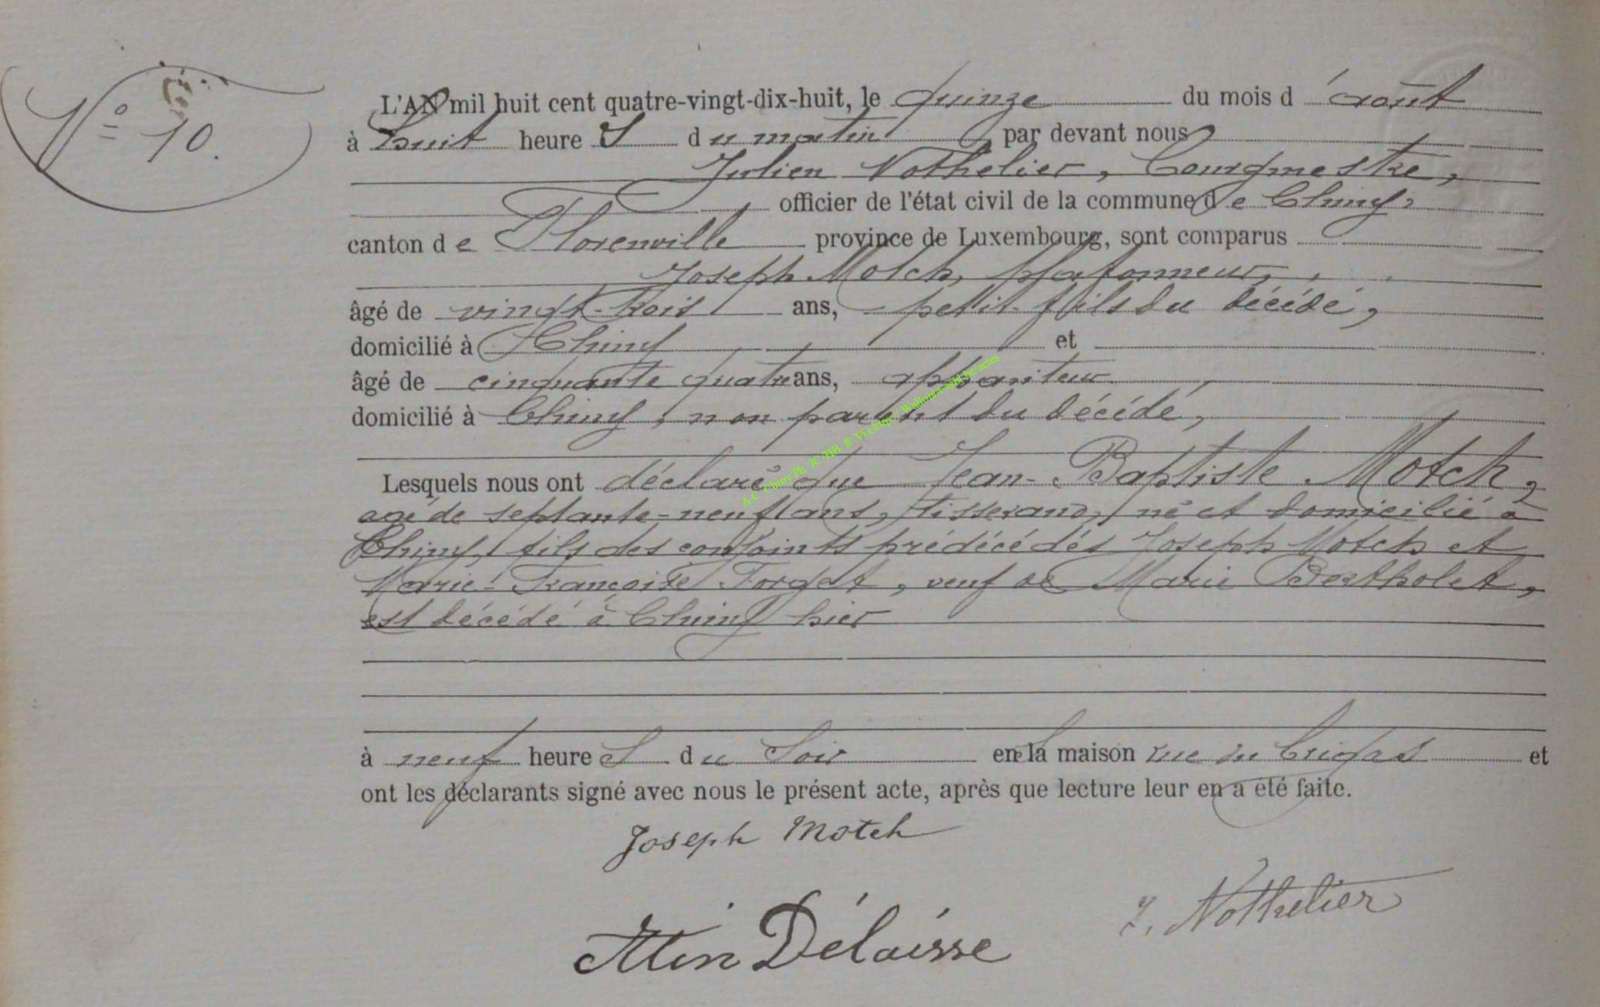 N° 10.
L'AN mil huit cent quatre-vingt-dix-huit, le quinze du mois d'août
à huit heures du matin, par devant nous
Julien Nothelier, Bourgmestre,
officier de l'état civil de la commune de Chiny,
canton de Florenville province de Luxembourg, sont comparus
Joseph Motch, plafonneur,
âgé de vingt-trois ans, petit-fils du décédé,
domicilié à Chiny et
âgé de cinquante quatre ans, appariteur
domicilié à Chiny, non parent du décédé,
Lesquels nous ont déclaré que Jean-Baptiste Motch,
agé de septante-neuf ans, tisserand, né et domicilié à
Chiny, fils des conjoints prédécédés Joseph Motch et
Marie-Françoise Forget, veuf de Marie Bertholet,
est décédé à Chiny hier
à neuf heures du soir en la maison rue du et
ont les déclarants signé avec nous le présent acte, après que lecture leur en a été faite.
Joseph Motch
J. Nothelier
Délaisse